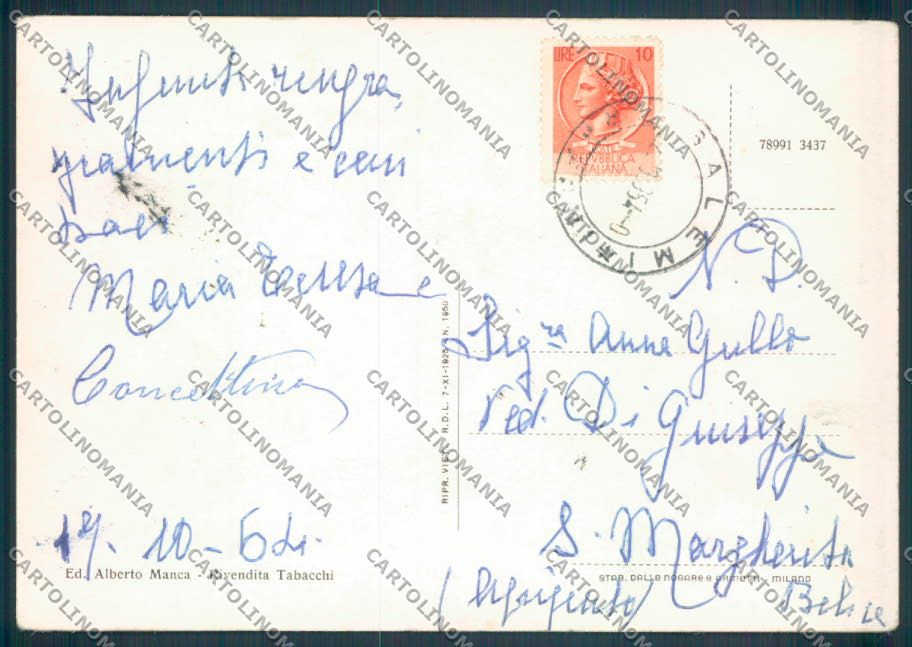 Infiniti ringra,
ziamenti e cari
baci
Maria Teresa e
Concettina
19. 10-64.
Ed. Alberto Manca - Rivendita Tabacchi
RIPR. VIET. R.D.L. 7-XI-1925 N. 1950
LIRE 10
REPVBBLICA
ITALIANA
SALEMI
78991 3437
N. D.
Sig.ra Anna Gullo
Ved. Di Giuseppe
S. Margherita
Belice
(Agrigento)
STAB. DALLE NOGARE E ARMETTI - MILANO
CARTOLINOMANIA